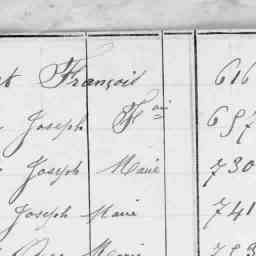 François 616
Joseph Fois 657
Joseph Marie 730
Joseph Marie 741
Marie 753